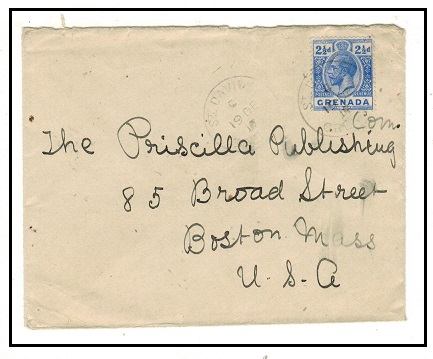 2½d 2½d
GRENADA
ST DAVID
C
19 OC
Com.
The Priscilla Publishing
85 Broad Street
Boston Mass
U. S. A